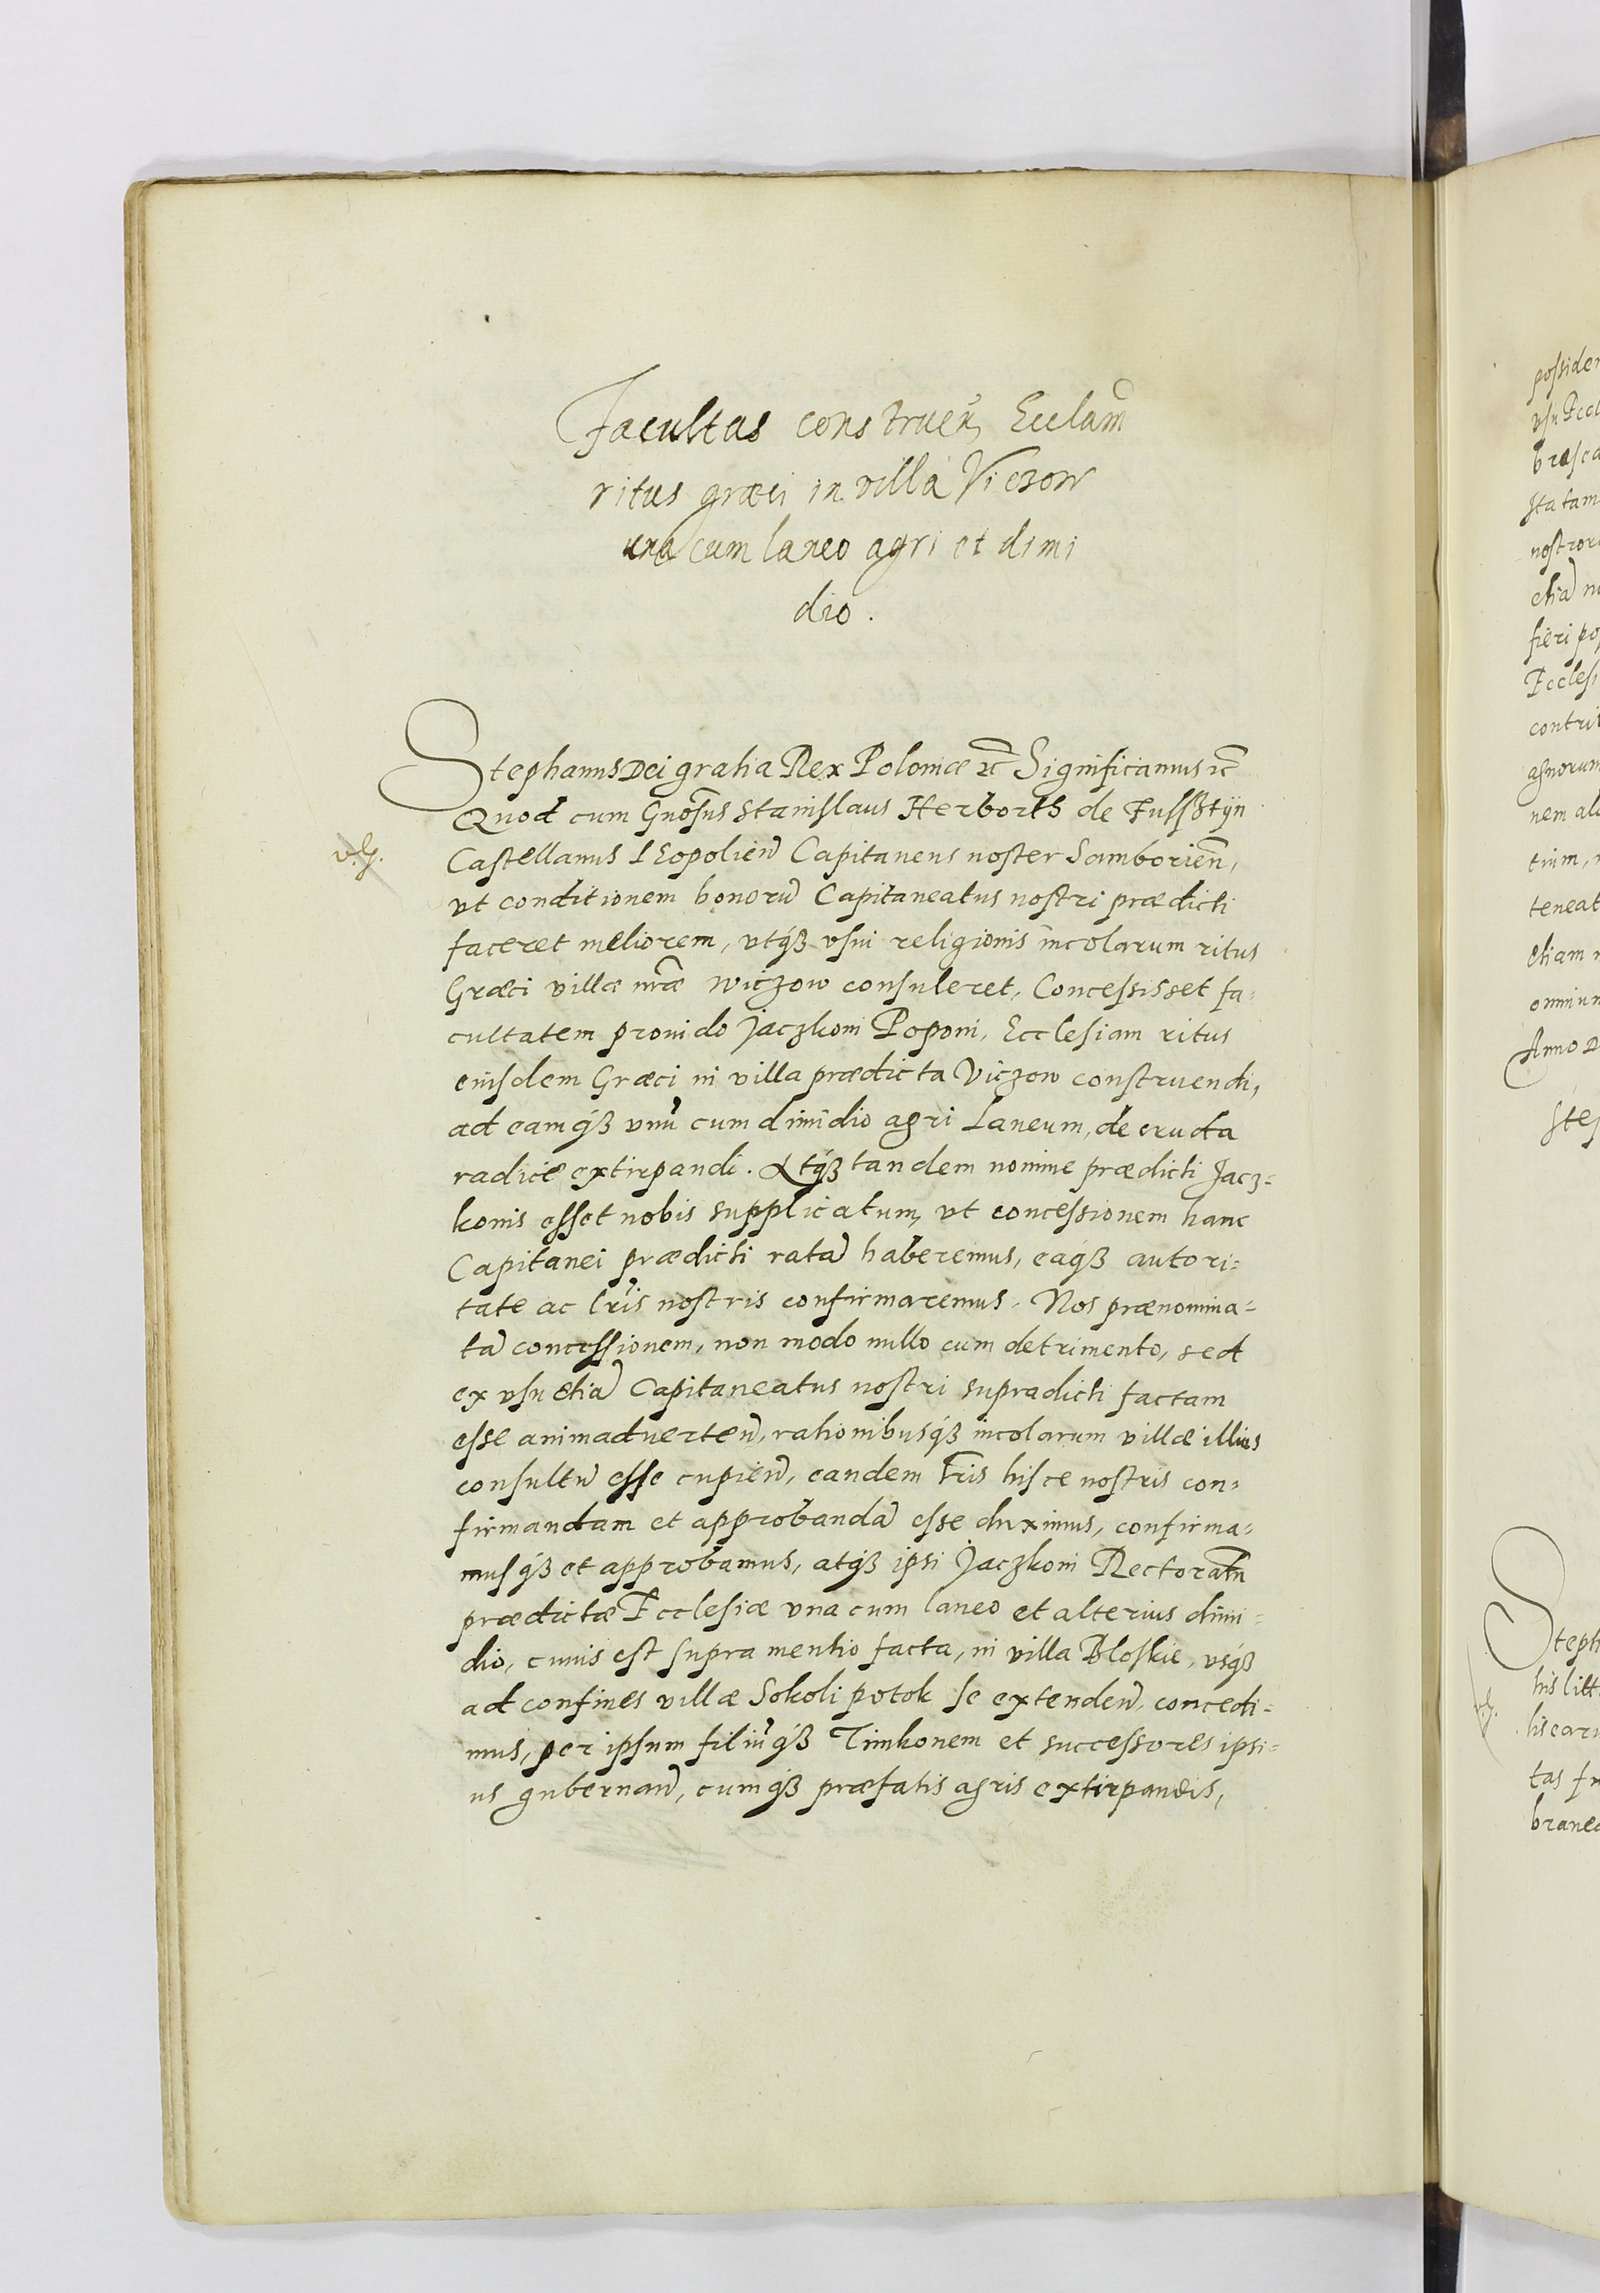 Facultas construen Ecclam
ritus græci in villa Viczow
una cum laneo agri et dimi
dio.
Stephanus Dei gratia Rex Poloniæ etc Significamus etc
Quod cum Gnosus Stanislaus Herborth de Fulsztÿn
v. G.
Castellanus LEopolien Capitaneus noster Samborien,
vt conditionem bonoru Capitaneatus nostri prædicti
faceret meliorem, vtq3 vsui religionis incolarum ritus
Græci villæ nræ wiczow consuleret, Concessisset fa-
cultatem prouido Jaczkoni Poponi, Ecclesiam ritus
eiusdem Græci in villa prædicta Viczow construendi,
ad eamq3 vnu cum dimidio agri Laneum, de eruda
radice extirpandi. Atq3 tandem nomine prædicti Jacz-
konis esset nobis supplicatum, vt concessionem hanc
Capitanei prædicti rata haberemus, eaq3 autori-
tate ac lris nostris confirmaremus. Nos prænomina-
ta concessionem, non modo nullo cum detrimento, sed
ex vsu etia Capitaneatus nostri supradicti factam
esse animaduerten, rationibusq3 incolarum villæ illius
consultu esse cupien, eandem lris hisce nostris con-
firmandam et approbanda esse duximus, confirma-
musq3 et approbamus, atq3 ipsi Jaczkoni Rectoratu
prædictæ Ecclesiæ vna cum laneo et alterius dimi-
dio, cuius est supra mentio facta, in villa Bloskie, vsq3
ad confines villæ Sokoli potok se extenden, concedi-
mus, per ipsum filiuq3 Timkonem et successores ipsi-
us gubernan, cumq3 præfatis agris extirpandis,